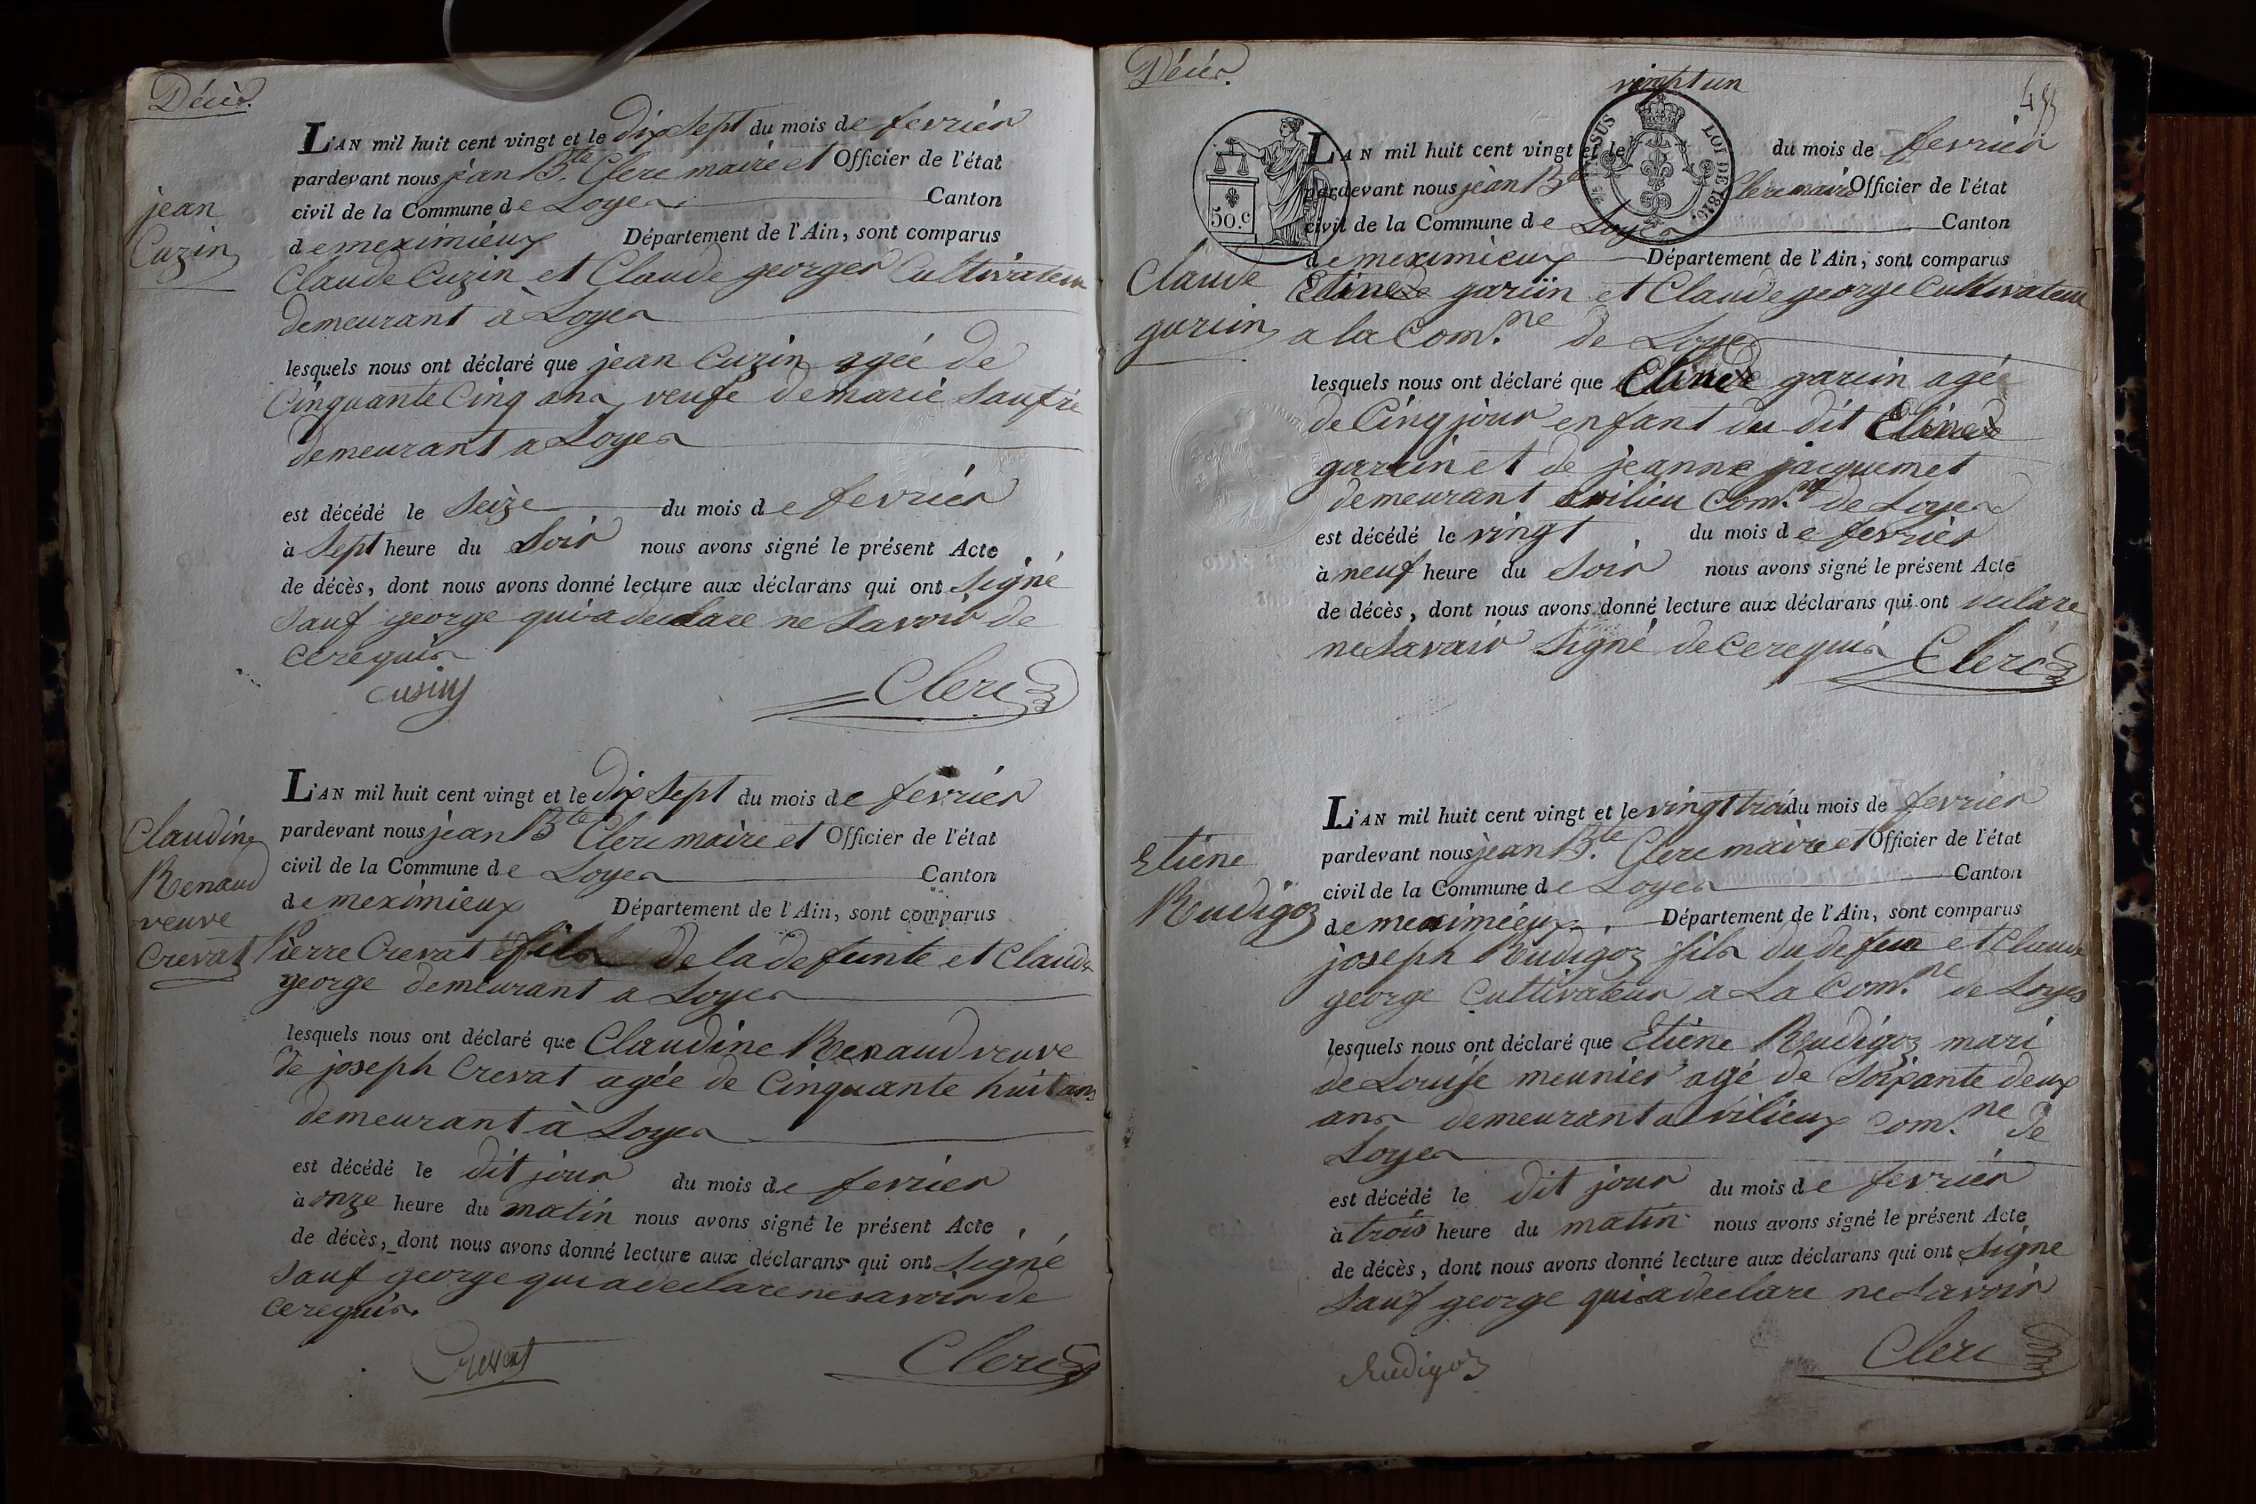 Décès.
jean
Cuzin
L'AN mil huit cent vingt et le dix Sept du mois de fevrier
pardevant nous jean Bte Clerc maire et Officier de l'état
civil de la Commune de Loyes Canton
de meximieux Département de l'Ain, sont comparus
Claude Cuzin et Claude george Cultivateur
demeurant à Loyes
lesquels nous ont déclaré que jean Cuzin agée de
Cinquante Cinq ans veufe de marie Saufré
demeurant a Loyes
est décédé le Seize du mois de fevrier
à Sept heure du Soir nous avons signé le présent Acte
de décès, dont nous avons donné lecture aux déclarans qui ont Signé
Sauf george qui a declare ne Savoir de
ce requis
Clerc
Claudine
Renaud
veuve
Crevat
L'AN mil huit cent vingt et le dix Sept du mois de fevrier
pardevant nous jean Bte Clerc maire et Officier de l'état
civil de la Commune de Loyes Canton
de meximieux Département de l'Ain, sont comparus
Pierre Crevat fils de la defunte et Claude
george demeurant a Loyes
lesquels nous ont déclaré que Claudine Renaud veuve
de joseph Crevat agée de Cinquante huit ans
demeurant à Loyes
est décédé le dit jour du mois de fevrier
à onze heure du matin nous avons signé le présent Acte
de décès, dont nous avons donné lecture aux déclarans qui ont Signé
Sauf george qui a declare ne savoir de
ce requis.
Clerc
Décès.
vingt un
50.c
LOI DE 1816
Claude
garein
L'AN mil huit cent vingt et le du mois de fevrier
pardevant nous jean Bte Clerc maire Officier de l'état
civil de la Commune de Loyes Canton
de meximieux Département de l'Ain, sont comparus
garein et Claude george Cultivateur
a la Com.ne de Loyes
lesquels nous ont déclaré que garein agée
de Cinq jour enfant du dit
garein et de jeanne jacquemet
demeurant a vilieu Com.ne de Loyes
est décédé le vingt du mois de fevrier
à neuf heure du Soir nous avons signé le présent Acte
de décès, dont nous avons donné lecture aux déclarans qui ont declare
ne Savoir Signé de ce requis Clerc
Etiene
Rudigoz
L'AN mil huit cent vingt et le vingt trois du mois de fevrier
pardevant nous jean Bte Clerc maire et Officier de l'état
civil de la Commune de Loyes Canton
de meximieux Département de l'Ain, sont comparus
joseph Rudigoz fils du defun et Claude
george Cultivateur a La Com.ne de Loyes
lesquels nous ont déclaré que Etiene Rudigoz mari
de Louise meunier agé de Soixante deux
ans demeurant a vilieux Com.ne de
Loyes
est décédé le dit jour du mois de fevrier
à trois heure du matin nous avons signé le présent Acte
de décès, dont nous avons donné lecture aux déclarans qui ont Signe
Sauf george qui a declare ne Savoir
Rudigoz Clerc